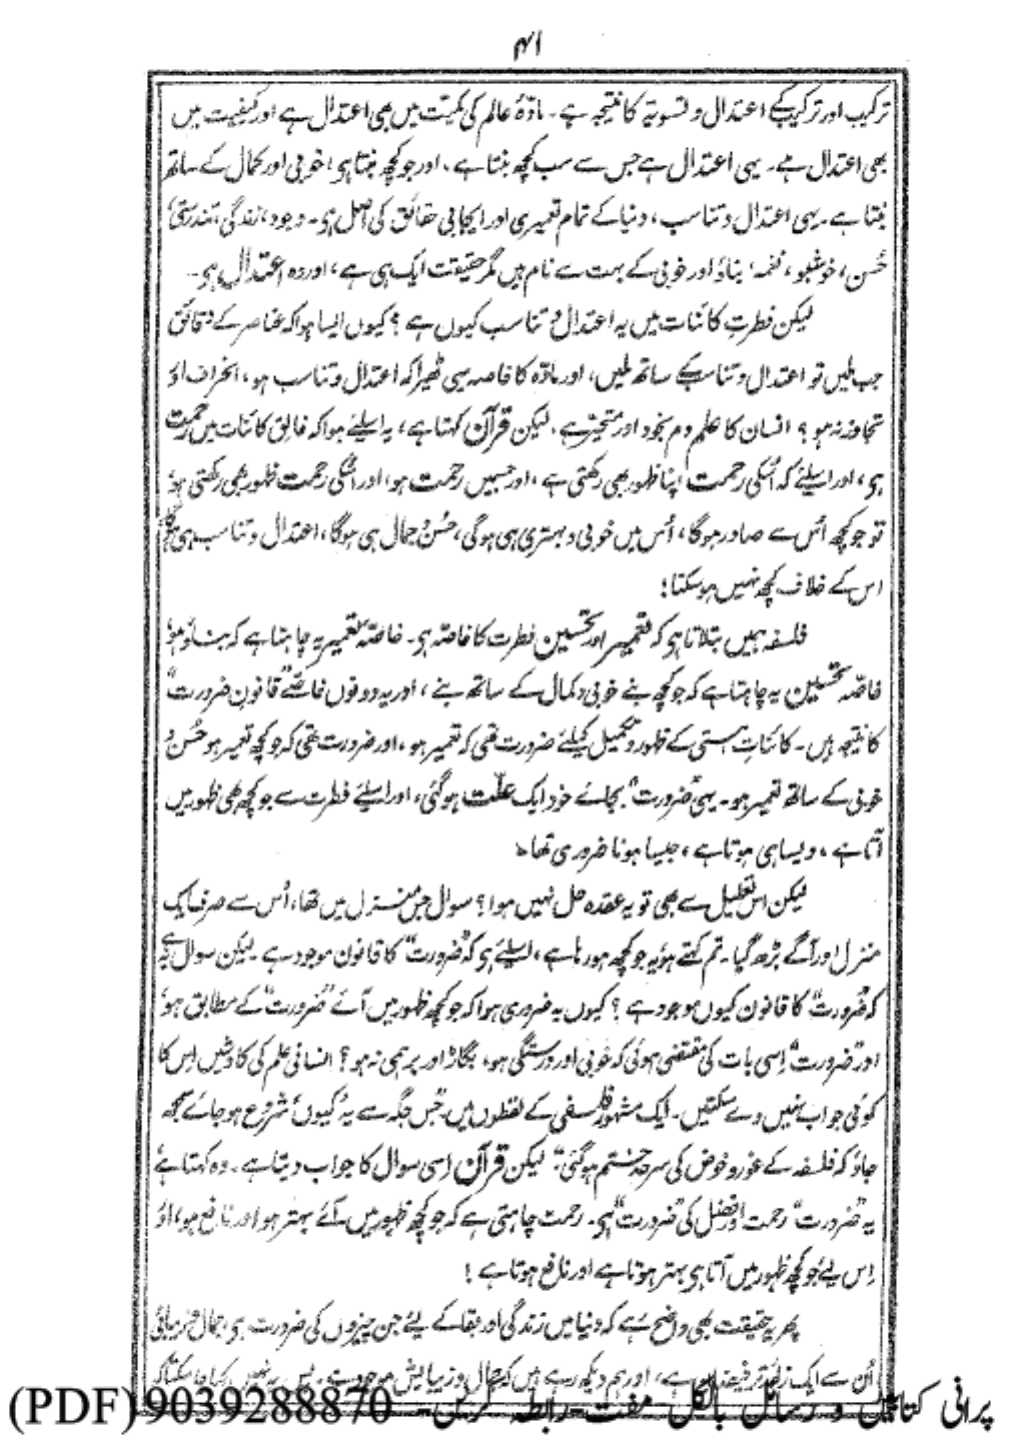 ۴۱
ترکیب اور ترکیب کے اعتدال و تسویہ کا نتیجہ ہے۔ مادۂ عالم کی کمیت میں بھی اعتدال ہے اور کیفیت میں
بھی اعتدال ہے۔ یہی اعتدال ہے جس سے سب کچھ بنتا ہے، اور جو کچھ بنتا ہی، خوبی اور کمال کے ساتھ
بنتا ہے۔ یہی اعتدال و تناسب، دنیا کے تمام تعمیری اور ایجابی حقائق کی اصل ہی۔ وجود، زندگی، تندرستی،
حُسن، خوشبو، نغمہ، بناؤ اور خوبی کے بہت سے نام ہیں مگر حقیقت ایک ہی ہے، اور وہ اعتدال ہی۔
لیکن فطرتِ کائنات میں یہ اعتدال و تناسب کیوں ہے؟ کیوں ایسا ہوا کہ عناصر کے دقائق
جب ملیں تو اعتدال و تناسب کے ساتھ ملیں، اور مادّہ کا خاصہ یہی ٹھیرا کہ اعتدال و تناسب ہو، انحراف اور
تجاوز نہ ہو؟ انسان کا علم دم بخود اور متحیر ہے، لیکن قرآن کہتا ہے، یہ اسلئے ہوا کہ خالق کائنات میں رحمت
ہی، اور اسلئے کہ اُسکی رحمت اپنا ظہور بھی رکھتی ہے، اور جسمیں رحمت ہو، اور اسکی رحمت ظہور بھی رکھتی ہو،
تو جو کچھ اُس سے صادر ہوگا، اُس میں خوبی و بہتری ہی ہوگی، حُسن و جمال ہی ہوگا، اعتدال و تناسب ہی ہوگا،
اس کے خلاف کچھ نہیں ہو سکتا!
فلسفہ ہمیں بتلاتا ہی کہ تعمیر اور تحسین فطرت کا خاصّہ ہی۔ خاصّۂ تعمیر یہ چاہتا ہے کہ بناؤ ہو،
خاصّۂ تحسین یہ چاہتا ہے کہ جو کچھ بنے خوبی و کمال کے ساتھ بنے، اور یہ دونوں خاصّے "قانونِ ضرورت"
کا نتیجہ ہیں۔ کائناتِ ہستی کے ظہور و تکمیل کیلئے ضرورت تھی کہ تعمیر ہو، اور ضرورت تھی کہ جو کچھ تعمیر ہو حُسن و
خوبی کے ساتھ تعمیر ہو۔ یہی "ضرورت" بجائے خود ایک علّت ہوگئی، اور اسلئے فطرت سے جو کچھ بھی ظہور میں
آتا ہے، ویسا ہی ہوتا ہے، جیسا ہونا ضروری تھا۔
لیکن اس تعلیل سے بھی تو یہ عقدہ حل نہیں ہوا؟ سوال جس منزل میں تھا، اُس سے صرف ایک
منزل اور آگے بڑھ گیا۔ تم کہتے ہو یہ جو کچھ ہو رہا ہے، اسلئے ہی کہ "ضرورت" کا قانون موجود ہے۔ لیکن سوال یہ ہے
کہ "ضرورت" کا قانون کیوں موجود ہے؟ کیوں یہ ضروری ہوا کہ جو کچھ ظہور میں آئے "ضرورت" کے مطابق ہو،
اور "ضرورت" اِسی بات کی مقتضی ہوئی کہ خوبی اور درستگی ہو، بگاڑ اور برہمی نہ ہو؟ انسانی علم کی کاوشیں اِس کا
کوئی جواب نہیں دے سکتیں۔ ایک مشہور فلسفی کے لفظوں میں "جس جگہ سے یہ کیوں شروع ہو جائے سمجھ
جاؤ کہ فلسفہ کے غور و خوض کی سرحد ختم ہوگئی" لیکن قرآن اِسی سوال کا جواب دیتا ہے۔ وہ کہتا ہے
یہ "ضرورت" رحمت اور فضل کی "ضرورت" ہی۔ رحمت چاہتی ہے کہ جو کچھ ظہور میں آئے بہتر ہو اور نافع ہو، اور
اِس لیے جو کچھ ظہور میں آتا ہی بہتر ہوتا ہے اور نافع ہوتا ہے!
پھر یہ حقیقت بھی واضح رہے کہ دنیا میں زندگی اور بقا کے لیے جن چیزوں کی ضرورت ہی، جمال و زیبائی
اُن سے ایک زائد تر فیضان ہے، اور ہم دیکھ رہے ہیں کہ جمال و زیبائش موجود ہے۔ پس یہ نہیں کہا جا سکتا کہ
پرانی کتابیں و رسائل بالکل مفت رابطہ کریں۔ 9039288870 (PDF)